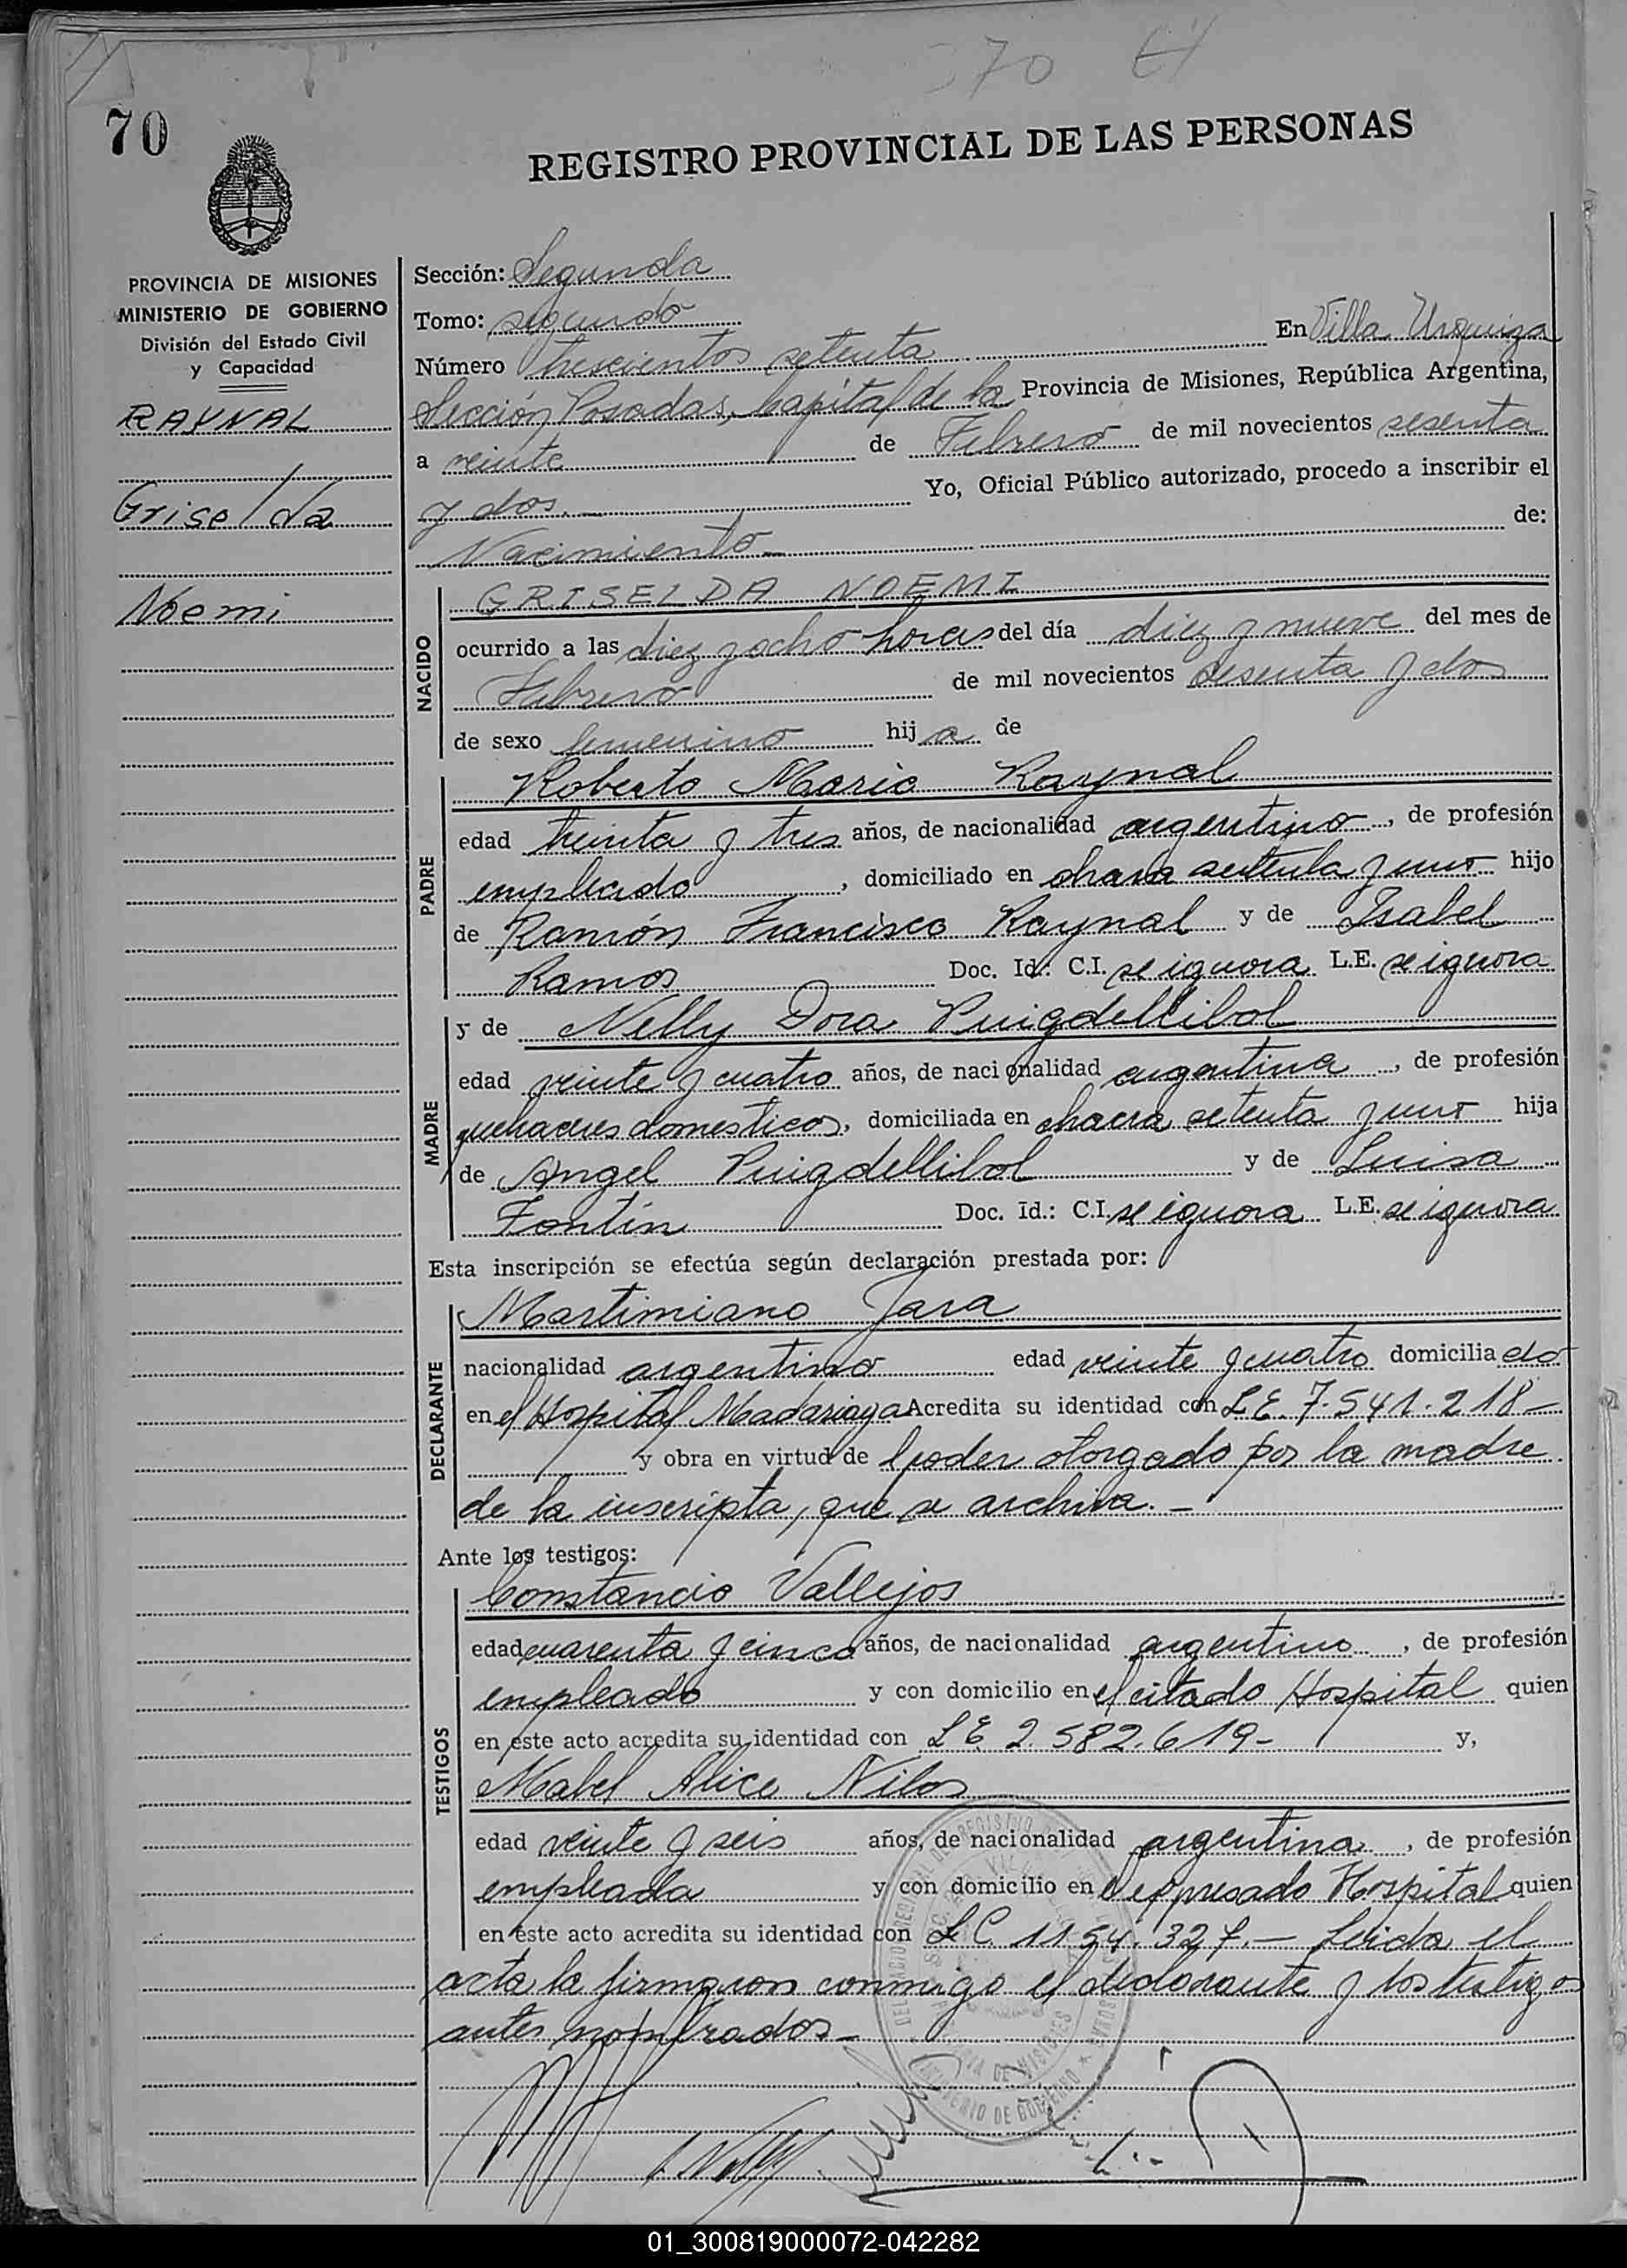 70
70
REGISTRO PROVINCIAL DE LAS PERSONAS
PROVINCIA DE MISIONES
MINISTERIO DE GOBIERNO
División del Estado Civil
y Capacidad
RAYNAL
Griselda
Noemi
Sección: Segunda
Tomo: segundo
Número trescientos setenta En Villa Urquiza
Sección Posadas, Capital de la Provincia de Misiones, República Argentina,
a veinte de Febrero de mil novecientos sesenta
y dos.— Yo, Oficial Público autorizado, procedo a inscribir el
Nacimiento— de:
NACIDO
GRISELDA NOEMI
ocurrido a las diez y ocho horas del día diez y nueve del mes de
Febrero de mil novecientos sesenta y dos
de sexo femenino hij a de
PADRE
Roberto Mario Raynal
edad treinta y tres años, de nacionalidad argentino, de profesión
empleado, domiciliado en chacra setenta y uno hijo
de Ramón Francisco Raynal y de Isabel
Ramos Doc. Id.: C.I. se ignora L.E. se ignora
MADRE
y de Nelly Dora Puigdellibol
edad veinte y cuatro años, de nacionalidad argentina, de profesión
quehaceres domesticos, domiciliada en chacra setenta y uno hija
de Angel Puigdellibol y de Luisa
Fontín Doc. Id.: C.I. se ignora L.E. se ignora
Esta inscripción se efectúa según declaración prestada por:
DECLARANTE
Martimiano Jara
nacionalidad argentino edad veinte y cuatro domicilia do
en el Hospital Madariaga Acredita su identidad con L.E. 7.541.218—
y obra en virtud de poder otorgado por la madre
de la inscripta, que se archiva.—
Ante los testigos:
TESTIGOS
Constancio Vallejos
edad cuarenta y cinco años, de nacionalidad argentino, de profesión
empleado y con domicilio en el citado Hospital quien
en este acto acredita su identidad con L E 2.582.619- y,
Mabel Alice Nilos
edad veinte y seis años, de nacionalidad argentina, de profesión
empleada y con domicilio en el expresado Hospital quien
en este acto acredita su identidad con L.C. 1154.327.— Leida el
acta la firmaron conmigo el declarante y los testigos
antes nombrados—
01_300819000072-042282